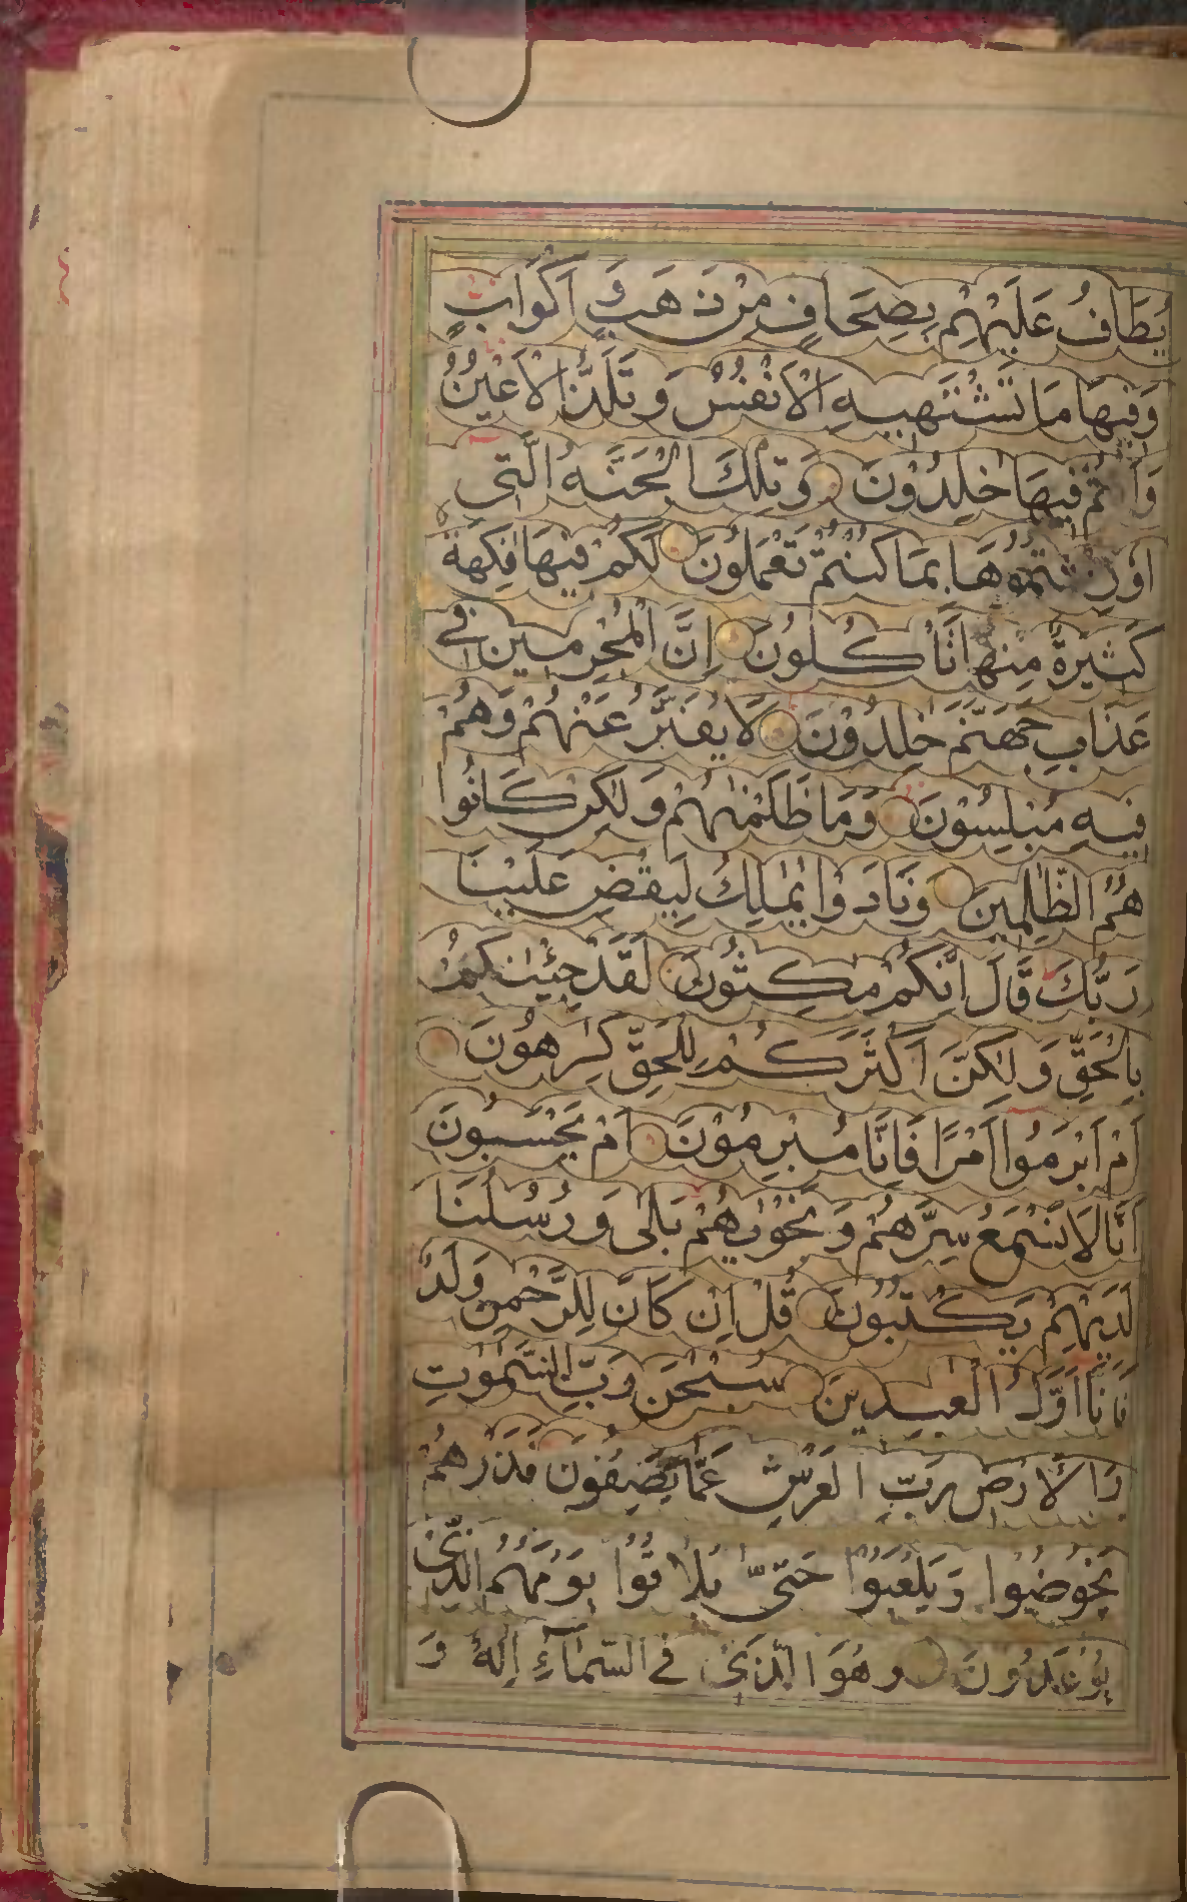 يُطَافُ عَلَيْهِمْ بِصِحَافٍ مِنْ ذَهَبٍ وَ اَكْوَابٍ
وَفِيهَا مَا تَشْتَهِيهِ الْاَنْفُسُ وَ تَلَذُّ الْاَعْيُنُ
وَاَنْتُمْ فِيهَا خٰلِدُوْنَ وَ تِلْكَ الْجَنَّةُ الَّتِى
اُوْرِثْتُمُوْهَا بِمَا كُنْتُمْ تَعْمَلُوْنَ لَكُمْ فِيْهَا فٰكِهَةٌ
كَثِيْرَةٌ مِنْهَا تَاْكُلُوْنَ اِنَّ الْمُجْرِمِيْنَ فِى
عَذَابِ جَهَنَّمَ خٰلِدُوْنَ لَا يُفَتَّرُ عَنْهُمْ وَهُمْ
فِيهِ مُبْلِسُوْنَ وَمَا ظَلَمْنٰهُمْ وَلٰكِنْ كَانُوا
هُمُ الظّٰلِمِيْنَ وَنَادَوْا يٰمٰلِكُ لِيَقْضِ عَلَيْنَا
رَبُّكَ قَالَ اِنَّكُمْ مٰكِثُوْنَ لَقَدْ جِئْنٰكُمْ
بِالْحَقِّ وَلٰكِنَّ اَكْثَرَكُمْ لِلْحَقِّ كٰرِهُوْنَ
اَمْ اَبْرَمُوا اَمْرًا فَاِنَّا مُبْرِمُوْنَ اَمْ يَحْسَبُوْنَ
اَنَّا لَا نَسْمَعُ سِرَّهُمْ وَ نَجْوٰيهُمْ بَلٰى وَ رُسُلُنَا
لَدَيْهِمْ يَكْتُبُوْنَ قُلْ اِنْ كَانَ لِلرَّحْمٰنِ وَلَدٌ
فَاَنَا اَوَّلُ الْعٰبِدِيْنَ سُبْحٰنَ رَبِّ السَّمٰوٰتِ
وَالْاَرْضِ رَبِّ الْعَرْشِ عَمَّا يَصِفُوْنَ فَذَرْهُمْ
يَخُوْضُوْا وَيَلْعَبُوْا حَتّٰى يُلَاقُوْا يَوْمَهُمُ الَّذِىْ
يُوْعَدُوْنَ وَهُوَ الَّذِىْ فِى السَّمَاۤءِ اِلٰهٌ وَ